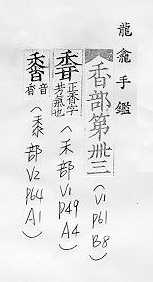 龍龕手鑑
香部第卅三
（V1
P61
B8）
正香字
芳氣也
（禾部
V1
P49
A4）
音香
（黍部
V2
P64
A1）